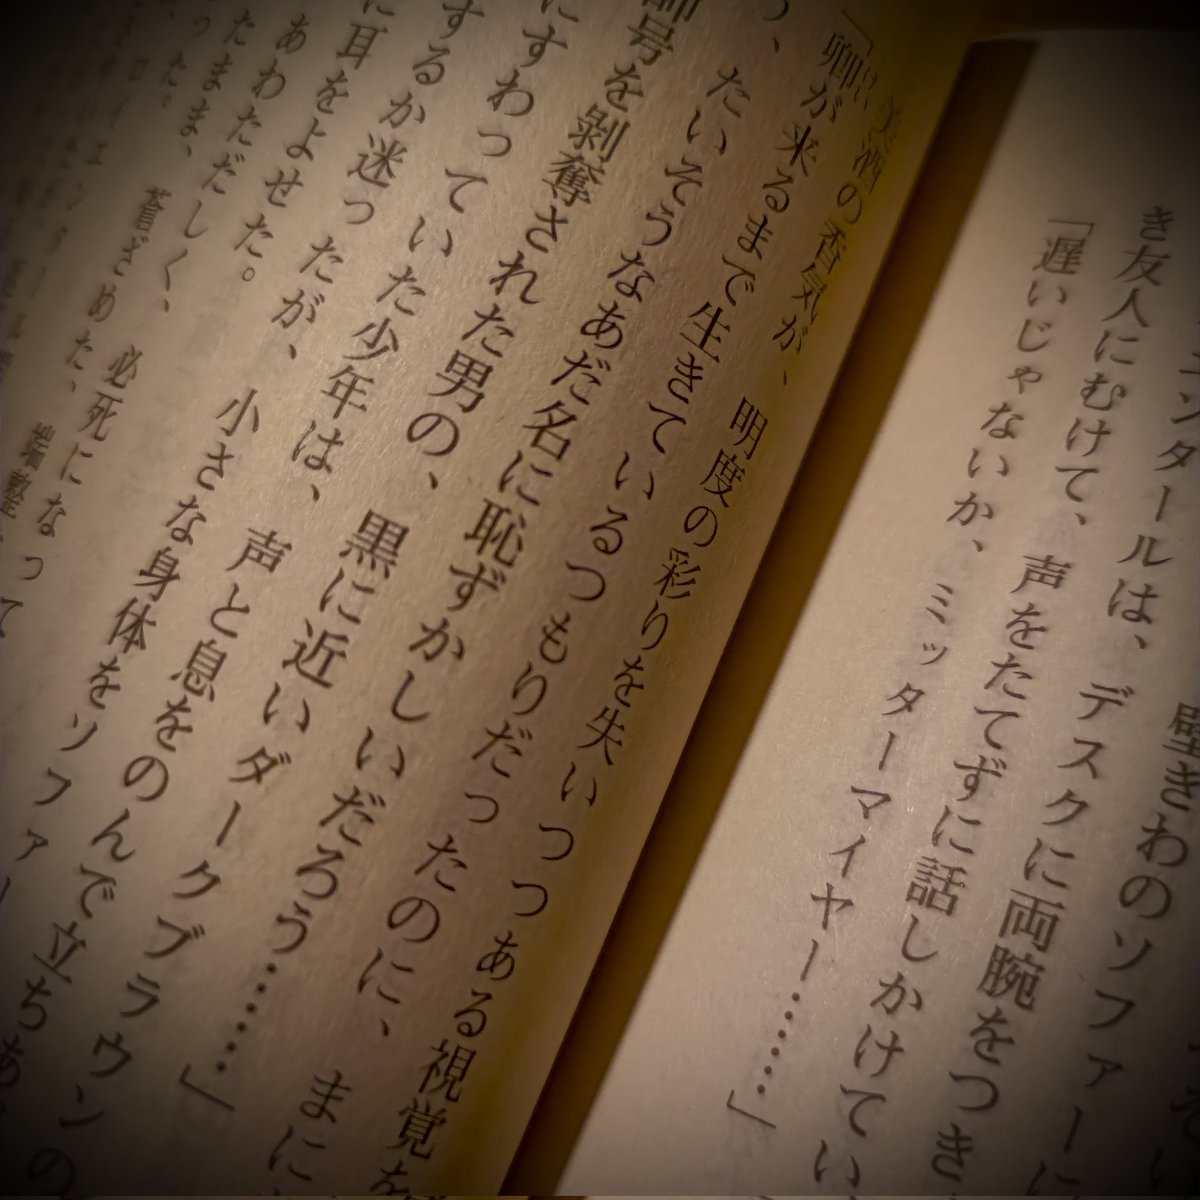 壁ぎわのソファーに
ンタールは、デスクに両腕をつき
き友人にむけて、声をたてずに話しかけてい
「遅いじゃないか、ミッターマイヤー……」
美酒の香気が、明度の彩りを失いつつある視覚を
「卿が来るまで生きているつもりだったのに、まに
つ、たいそうなあだ名に恥ずかしいだろう……」
師号を剥奪された男の、黒に近いダークブラウンの
にすわっていた少年は、声と息をのんで立ちあ
するか迷ったが、小さな身体をソファー
に耳をよせた。
あわただしく、必死になって
たまま、蒼ざめた、端整
った。